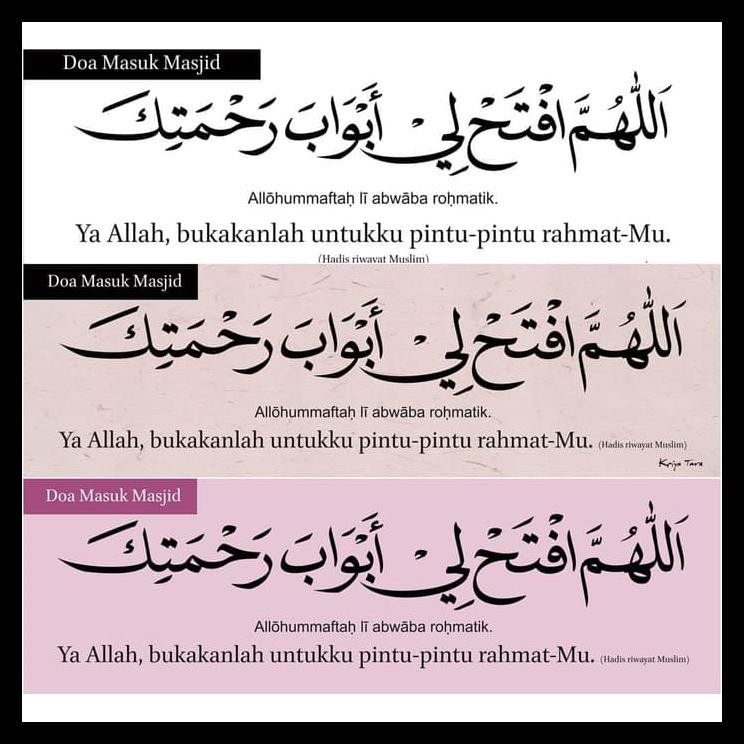 Doa Masuk Masjid
اَللّٰهُمَّ افْتَحْ لِيْ أَبْوَابَ رَحْمَتِكَ
Allōhummaftaḥ lī abwāba roḥmatik.
Ya Allah, bukakanlah untukku pintu-pintu rahmat-Mu.
(Hadis riwayat Muslim)
Doa Masuk Masjid
اَللّٰهُمَّ افْتَحْ لِيْ أَبْوَابَ رَحْمَتِكَ
Allōhummaftaḥ lī abwāba roḥmatik.
Ya Allah, bukakanlah untukku pintu-pintu rahmat-Mu. (Hadis riwayat Muslim)
Kriya Tara
Doa Masuk Masjid
اَللّٰهُمَّ افْتَحْ لِيْ أَبْوَابَ رَحْمَتِكَ
Allōhummaftaḥ lī abwāba roḥmatik.
Ya Allah, bukakanlah untukku pintu-pintu rahmat-Mu. (Hadis riwayat Muslim)